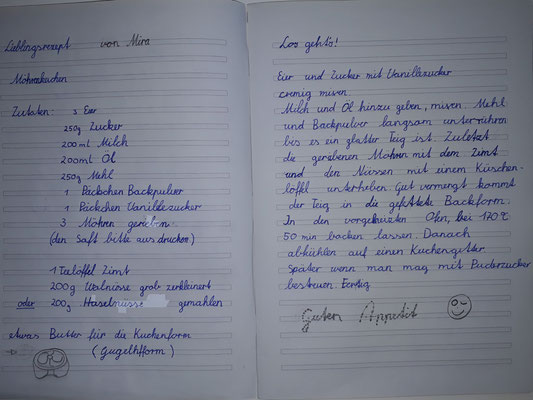 Lieblingsrezept von Mira
Möhrenkuchen
Zutaten: 3 Eier
250g Zucker
200ml Milch
200ml Öl
250g Mehl
1 Päckchen Backpulver
1 Päckchen Vanillezucker
3 Möhren gerieben.
(den Saft bitte ausdrucken)
1 Teelöffel Zimt
200g Walnüsse grob zerkleinert
oder 200g Haselnüsse gemahlen
etwas Butter für die Kuchenform
(Gugelhfform)
Los geht's!
Eier und Zucker mit Vanillezucker
cremig mixen.
Milch und Öl hinzu geben, mixen. Mehl
und Backpulver langsam unterrühren
bis es ein glatter Teig ist. Zuletzt
die geriebenen Möhren mit dem Zimt
und den Nüssen mit einem Küschen-
löffel unterheben. Gut vermengt kommt
der Teig in die gefettete Backform.
In den vorgeheizten Ofen, bei 170°C
50 min backen lassen. Danach
abkühlen auf einen Kuchengitter
Später wenn man mag mit Puderzucker
bestreuen. Fertig
Guten Appetit